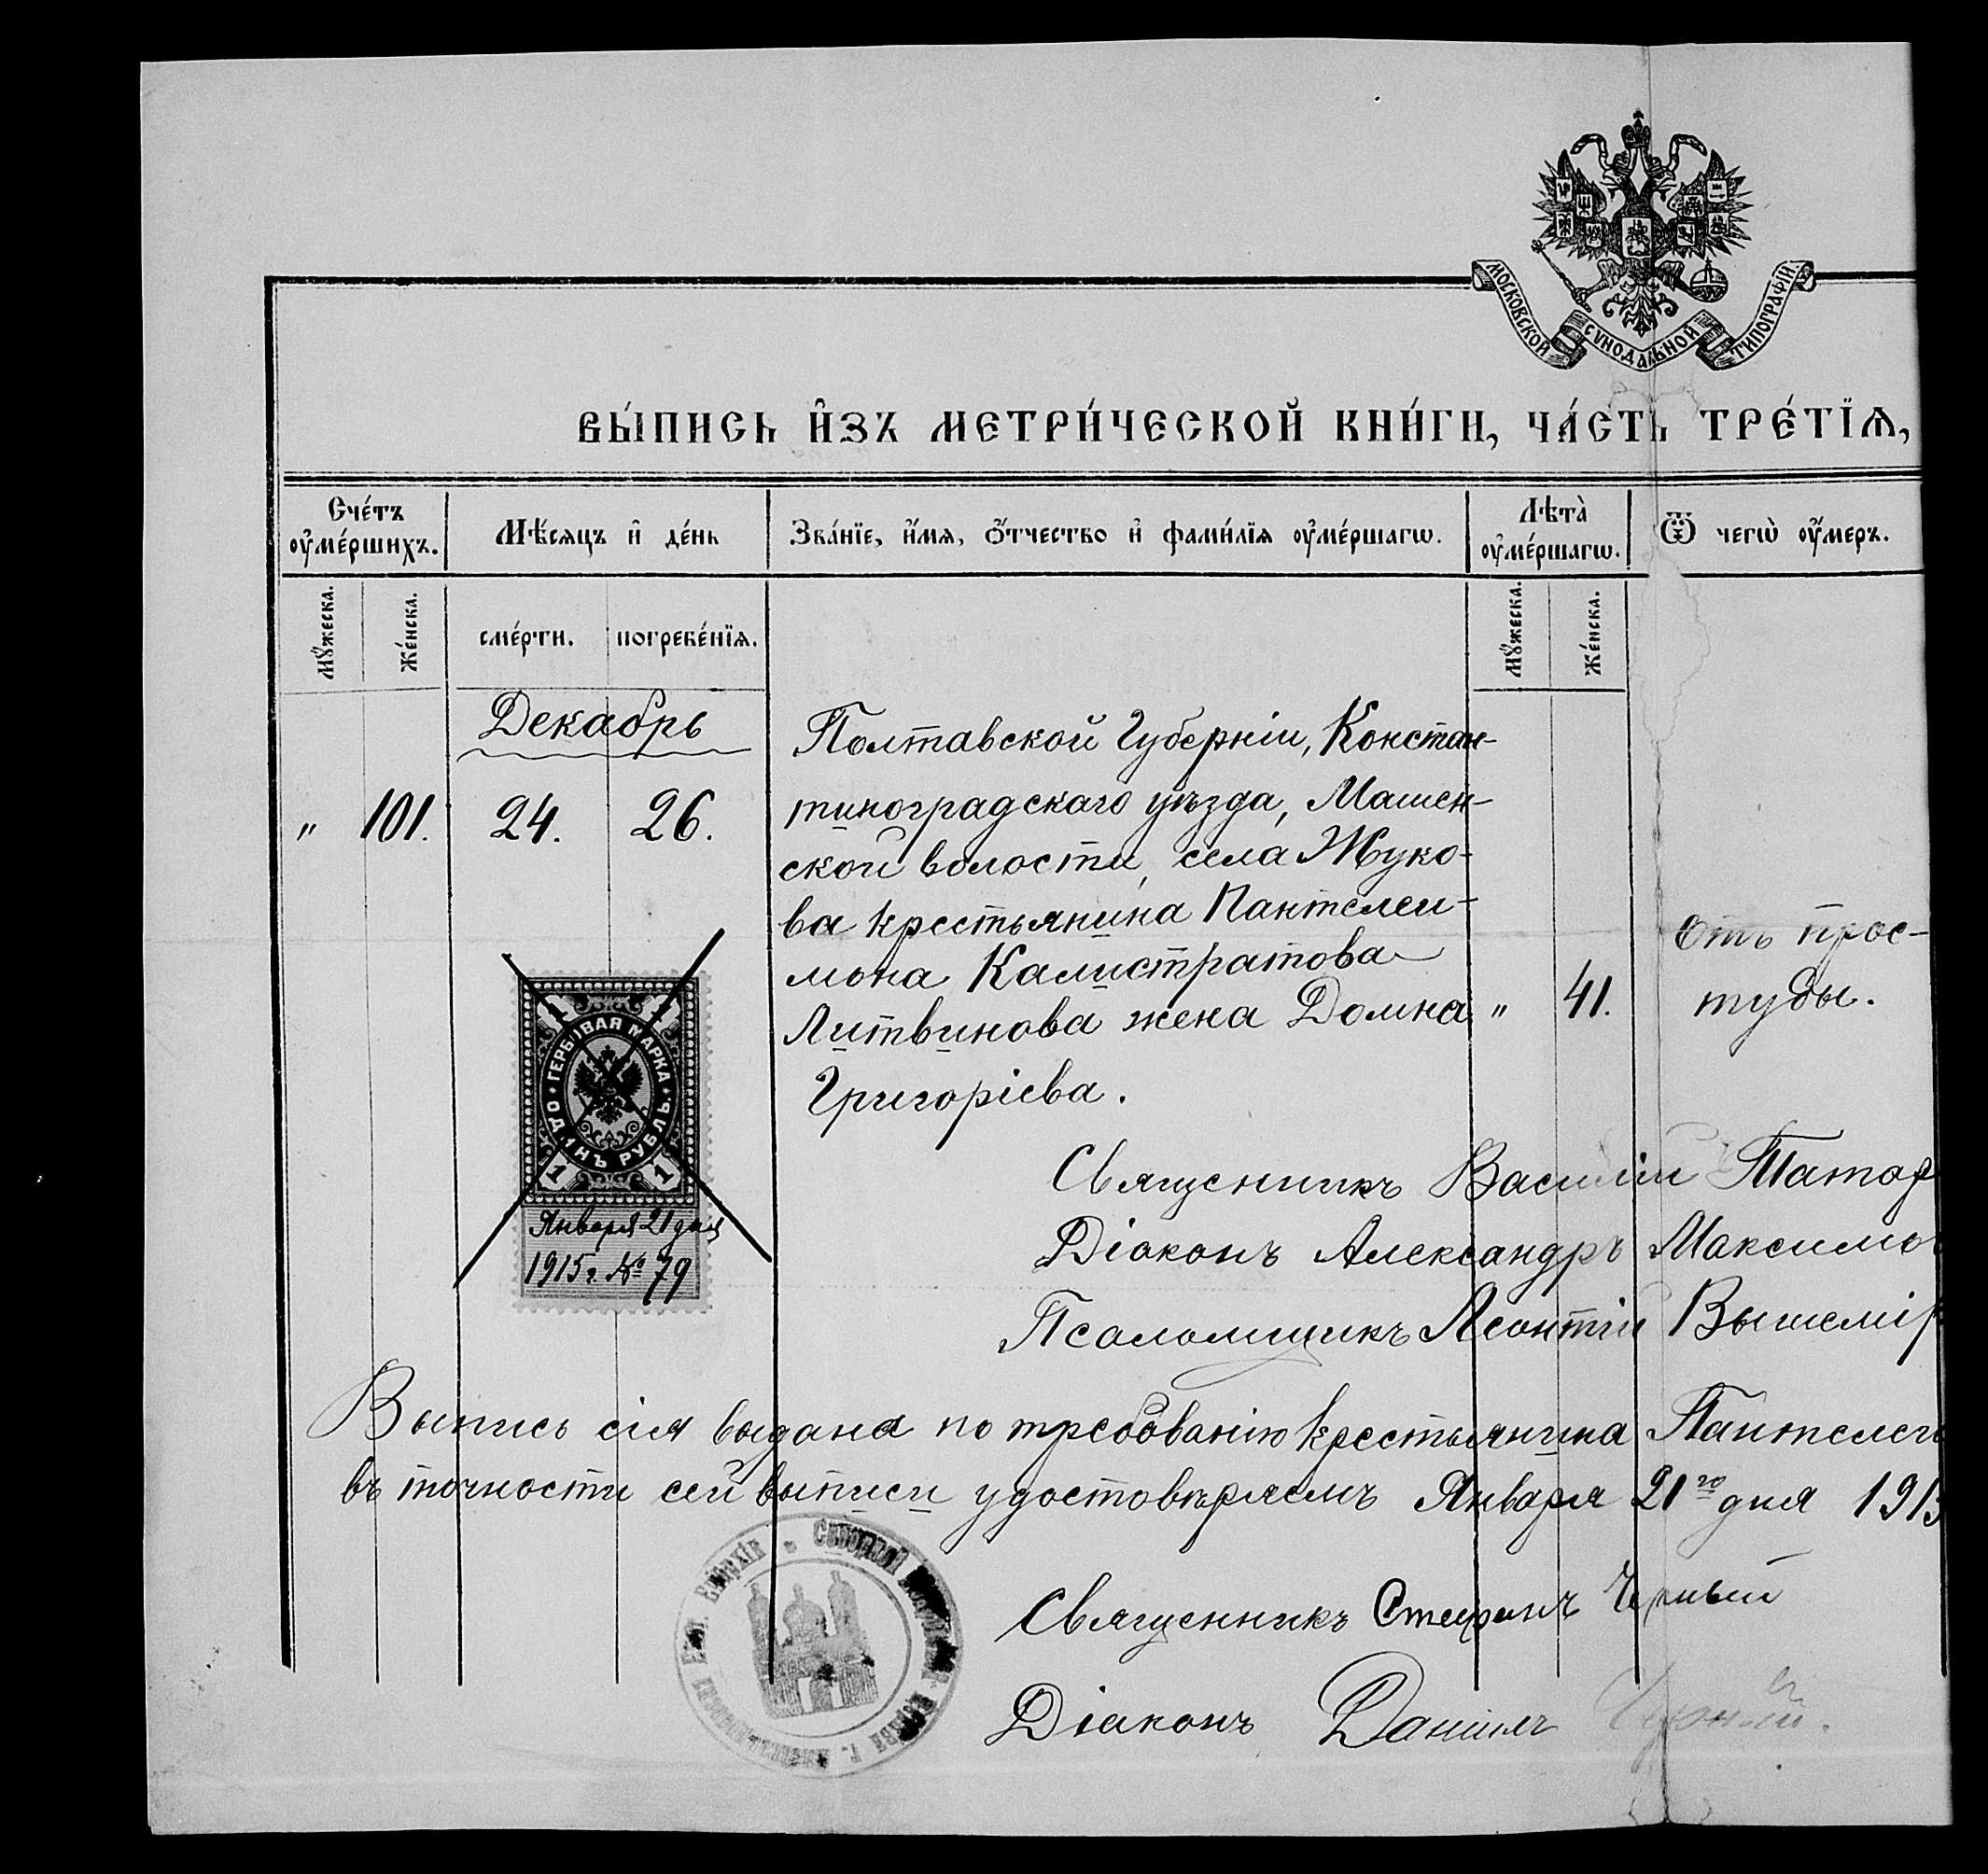 МОСКОВСКОЙ СѴНОДАЛЬНОЙ ТИПОГРАФІИ
ВЫ́ПИСЬ И҆ЗЪ МЕТРИ́ЧЕСКОЙ КНИ́ГИ, ЧА́СТЬ ТРЕ́ТЇѦ,
Сче́тъ ᲂу҆ме́ршихъ.
Мѣ́сяцъ и҆ де́нь
Зва́нїе, и҆́мѧ, ѻ҆́тчество и҆ фами́лїѧ ᲂу҆ме́ршагѡ.
Лѣта̀ ᲂу҆ме́ршагѡ.
Ѿ чегѡ̀ ᲂу҆́меръ.
Мꙋ́жеска.
Же́нска.
сме́рти.
погребе́нїѧ.
Мꙋ́жеска.
Же́нска.
Декабрь
" 101. 24. 26.
Полтавской Губерніи, Констан-
тиноградскаго уѣзда, Машен-
ской волости, села Жуко-
ва крестьянина Пантелеи-
мона Калистратова
Литвинова жена Домна
Григоріева.
" 41.
Отъ прос-
туды.
ГЕРБОВАЯ МАРКА
ОДИНЪ РУБЛЬ
1 1
1 1
Января 21 дня
1915 г. № 79
Священникъ Василій Татар
Діаконъ Александръ Максимо
Псаломщикъ Леонтій Вышемір
Выпись сія выдана по требованію крестьянина Пантелеи
въ точности сей выписи удостовѣряемъ Января 21го дня 191
Священникъ Стефанъ Черный
Діаконъ Даніилъ